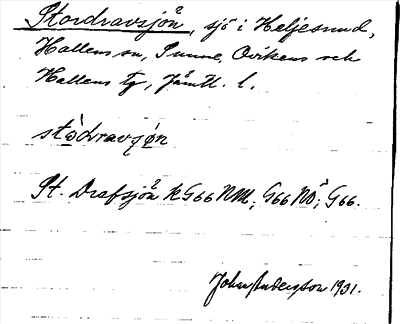 Stordravsjön, sjö i Heljesund,
Hallens sn, Sunne, Ovikens och
Hallens tg, Jämtl. l.
stòdravʃøn
St. Drafsjön K G66 NM; G66 NÖ; G66.
John Andersson 1931.